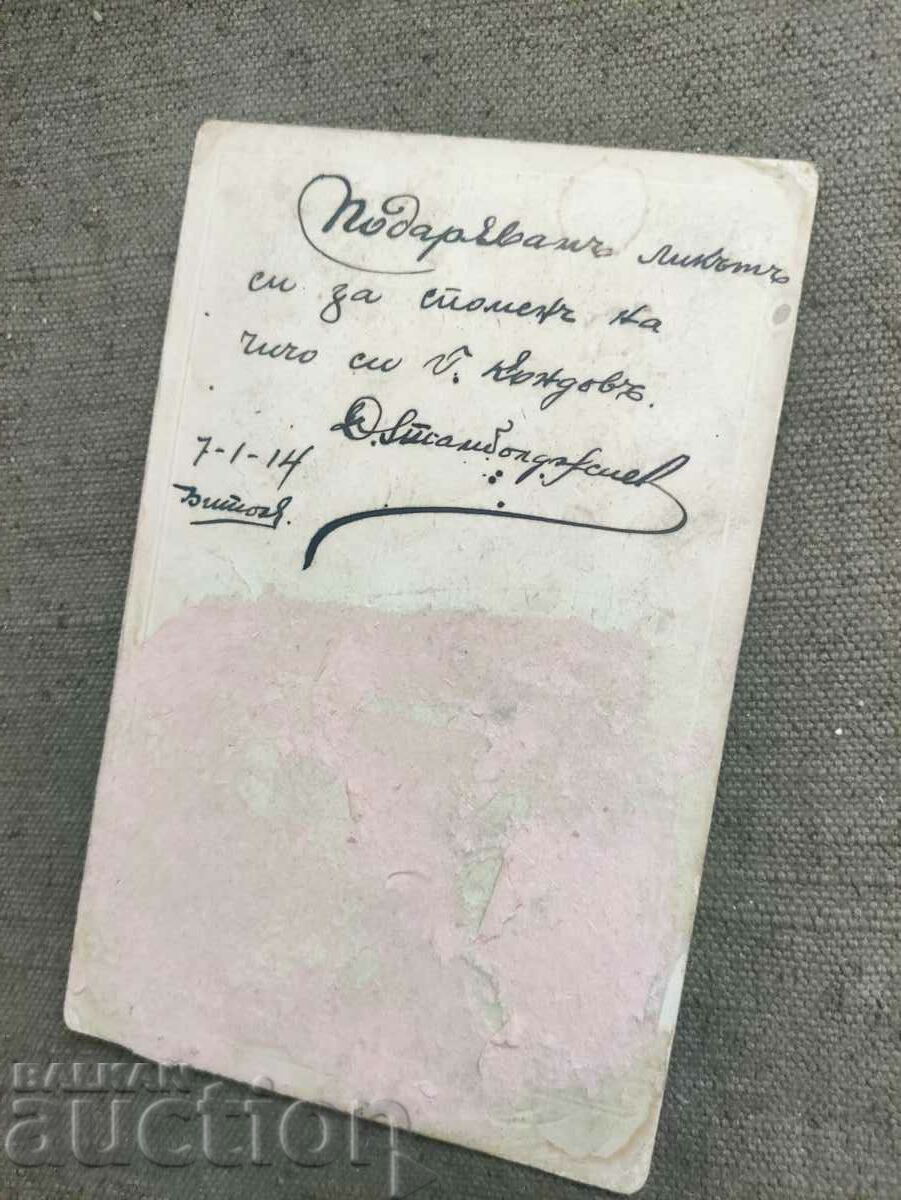 Подарявамъ ликътъ
си за споменъ на
чичо си Г. Кондовъ.
Д. Стамболджиев
7-1-14
Битоля.
BALKAN
auction